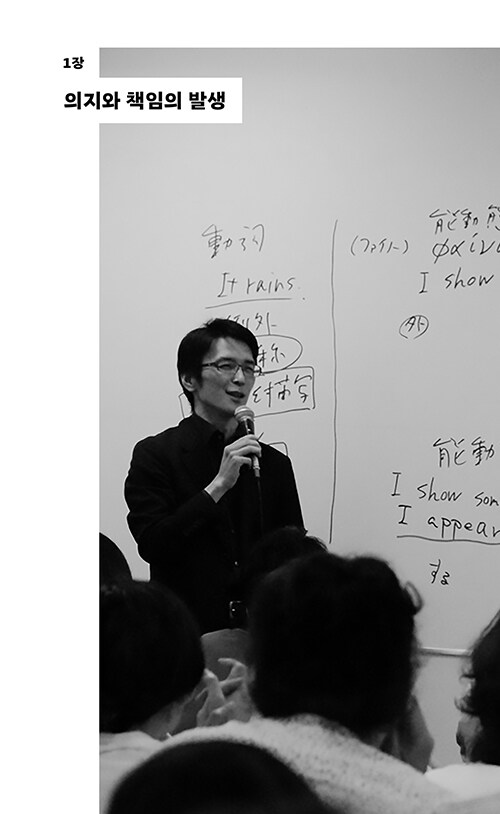 1장
의지와 책임의 발생
動詞
It rains.
例外
能動態
(ファイノー) φαίνω
I show
外
能動
I show som
I appear
する